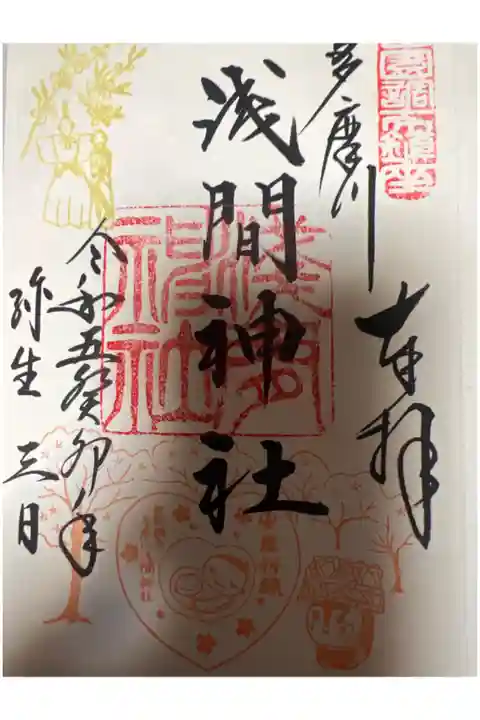 多摩川
奉拝
浅間神社
令和五癸卯年
弥生 三日
浅間神社